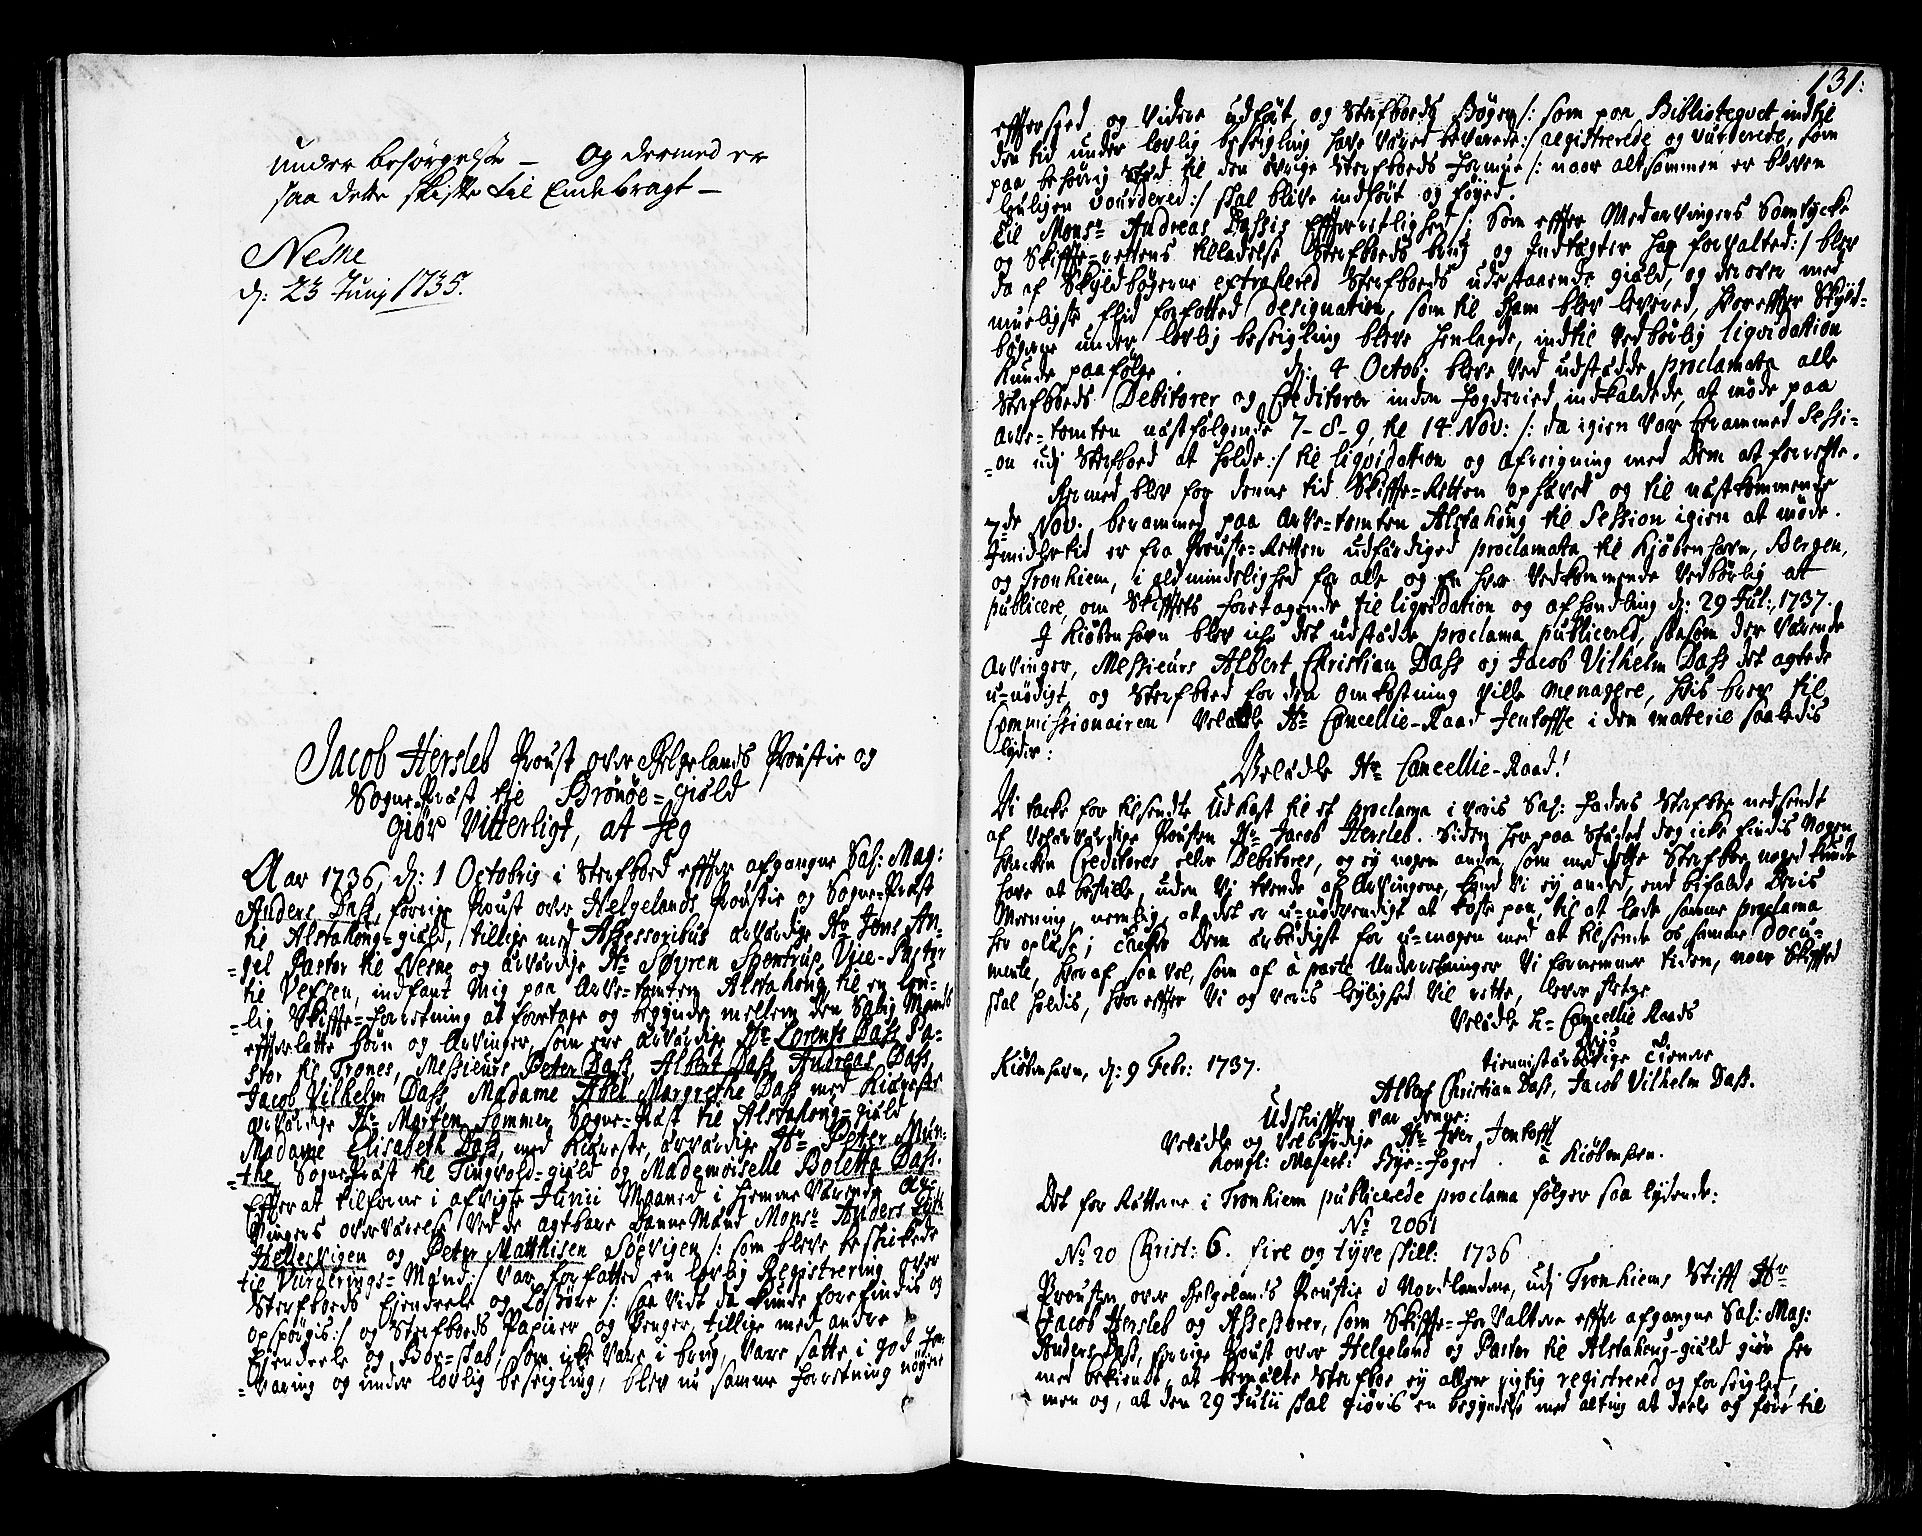 under besörgelse – Og dermed er
saa dette skifte til Ende bragt –
Nesne
d: 23 Junij 1735.
Jacob Hersleb Proust over Helgelands Proustie og
Sogne-Præst til Brönöe-giæld
Giör Vitterligt, at Jeg
Aar 1736, d: 1 Octobris i Sterfboed effter afgangne Sal: Mag:
Anders Dass, forrige Proust over Helgelands Proustie og Sogne-Præst
til Alstahoug-giæld, tillige med Assessoribus ærværdige Hr Jens An-
-gel Pastor til Nesne og ærværdige Hr Søvren Spentrup Vice-Pastor
til Vefsen, indfant mig paa Arve-tomten Alstahoug til en lou-
-lig Skiffte-forretning at foretage og begynde mellem den Salig Mands
effterlatte börn og Arvinger, som ere ærværdige Hr Lorents Dass Pa-
stor til Trones, Messieurs Peter Dass, Albert Dass, Andreas Dass,
Jacob Vilhelm Dass, Madame Abel Margrethe Dass med Kiæreste
ærværdige Hr Morten Lommer Sogne-Præst til Alstahoug-giæld
Madame Elisabeth Dass, med Kiæreste, ærværdige Hr Petter Mün-
-the, Sogne-Præst til Tingvold-giæld og Mademoiselle Boletta Dass.
Effter at tilforne i afvigte Junii Maaned i hiemme Værende Ar-
Vingers overværelse Ved de agtbare Danne Mænd Monsr Anders
Hellesvigen og Peter Matthisen Söevigen /: som bleve beskickede
til Vurderings-Mænd :/ var forfatted en lovlig Registrering over
Sterfboeds Eiendeele og Lösöre /: saa Vidt da kunde forefindis og
opspörgis :/ og Sterfboeds Papiirer og Penger, tillige med andre
Eiendeele og Boe-skab, som icke Vare i brug, Vare satte i god For
-varing og under lovlig beseigling, blev nu samme forretning nöyere
131:
effterseed og Videre udfört, og Sterfboeds Böger /: som paa Bibliotequet indtil
den tid under lovlig beseigling have Været bevarede :/ registrerede og vurderede, som
paa behörig sted til den övrige Sterfboeds Formue /: naar altsammen er bleven
lovligen vourdered :/ skal blive indfört og föyed.
til Monsr Andreas Dassis Effterretlighed /: Som effter Medarvingers Samtycke
og Skiffte-rettens tilladelse Sterfboeds brug og Indtægter har forvalted :/ blev
da af Skyldbögerne extrahered Sterfboeds udestaaende giæld, og derover med
mueligste flid forfatted designation, som til Ham blev levered, Hvoreffter Skyld-
bögerne under lovlig beseigling bleve henlagde, indtil Vedbörlig liqvidation
Kunde paafölge. d: 4 Octob: bleve Ved udstædde proclamata alle
Sterfboeds Debitorer og Creditorer inden Fogderied indkaldede, at möde paa
Arve-tomten næstfölgende 7-8-9, til 14 Nov: /: da igien var berammed Sessi-
-on udj Sterfboed at holde :/ til liqvidation og Afreigning med Dem at forrette.
Hermed blev for denne tid Skiffte-Retten ophævet og til næstkommende
7de Nov. berammed paa Arve-tomten Alstahoug til Session igien at möde.
Imidlertid er fra Prouste-Retten udfærdiged proclamata til Kjöbenhavn, Bergen,
og Tronhiem, i aldmindelighed for alle og En hver Vedkommende Vedbörlig at
publicere, om Skifftets foretagende til liqvidation og afhandling d: 29 Jul:, 1737.
I Kiöbenhavn blev icke det udstædte proclama publicered, saasom der Værende
Arvinger, Messieurs Albert Christian Dass og Jacob Vilhelm Dass det agtede
u-nödigt, og Sterfboed for den Omkostning Ville menagere, Hvis brev til
Commissionairen Velædle Hr Cancellie-Raad Jentofft i den materie saaledis
lyder:
Velædle Hr Cancellie-Raad!
Vi tacke for tilsendte Udkast til et proclama i voris Sal: Faders Sterfboe nedsendt
af Velærværdige Prousten Hr Jacob Hersleb. Siden her paa Stædet dog icke findis nogen
hvercken Creditores eller Debitores, og ey nogen anden, som med dette Sterfboe noged kunde
have at bestille, uden Vi tvende af Arvingene, kand Vi ey anded, end bifalde Deris
Meening, nemlig, at det er u-nödvendigt at koste paa, til at lade samme proclama
her oplæse; tacker Dem ærbödigst for u-magen med at tilsende os samme docu-
mente, Hvoraf saavel, som af à parte Underretninger Vi fornemmer tiden, naar Skifftet
skal holdis, Hvoreffter Vi og voris leylighed Vil rette, lever stetze
Velædle H: Cancellie Raads
Deris
Kiöbenhavn, d: 9 Febr: 1737. tiennistærbödige tienere
Albert Christian Dass, Jacob Vilhelm Dass.
Udskrifften var denne:
Velædle og Velbyrdige Hr Iver Jentofft
Kongl: Majest: Bye-Foged à Kiöbenhavn.
Det for Rettene i Tronhiem publicerede proclama fölger saa lydende:
No 2061
No 20 Christ: 6. fire og tyve skill: 1736
Prousten over Helgelands Proustie i Nordlandene, udj Tronhiems Stifft Hr
Jacob Hersleb og Assessorer, som Skiffte-Forvaltere effter afgangne Sal: Mag:
Anders Dass, forrige Proust over Helgeland og Pastor til Alstahoug-giæld giör her
med bekiendt, at bemælte Sterfboe ey allene rigtig registrered og forseigled,
men og, at den 29 Julii skal giöris en begyndelse med alting at deele og före til